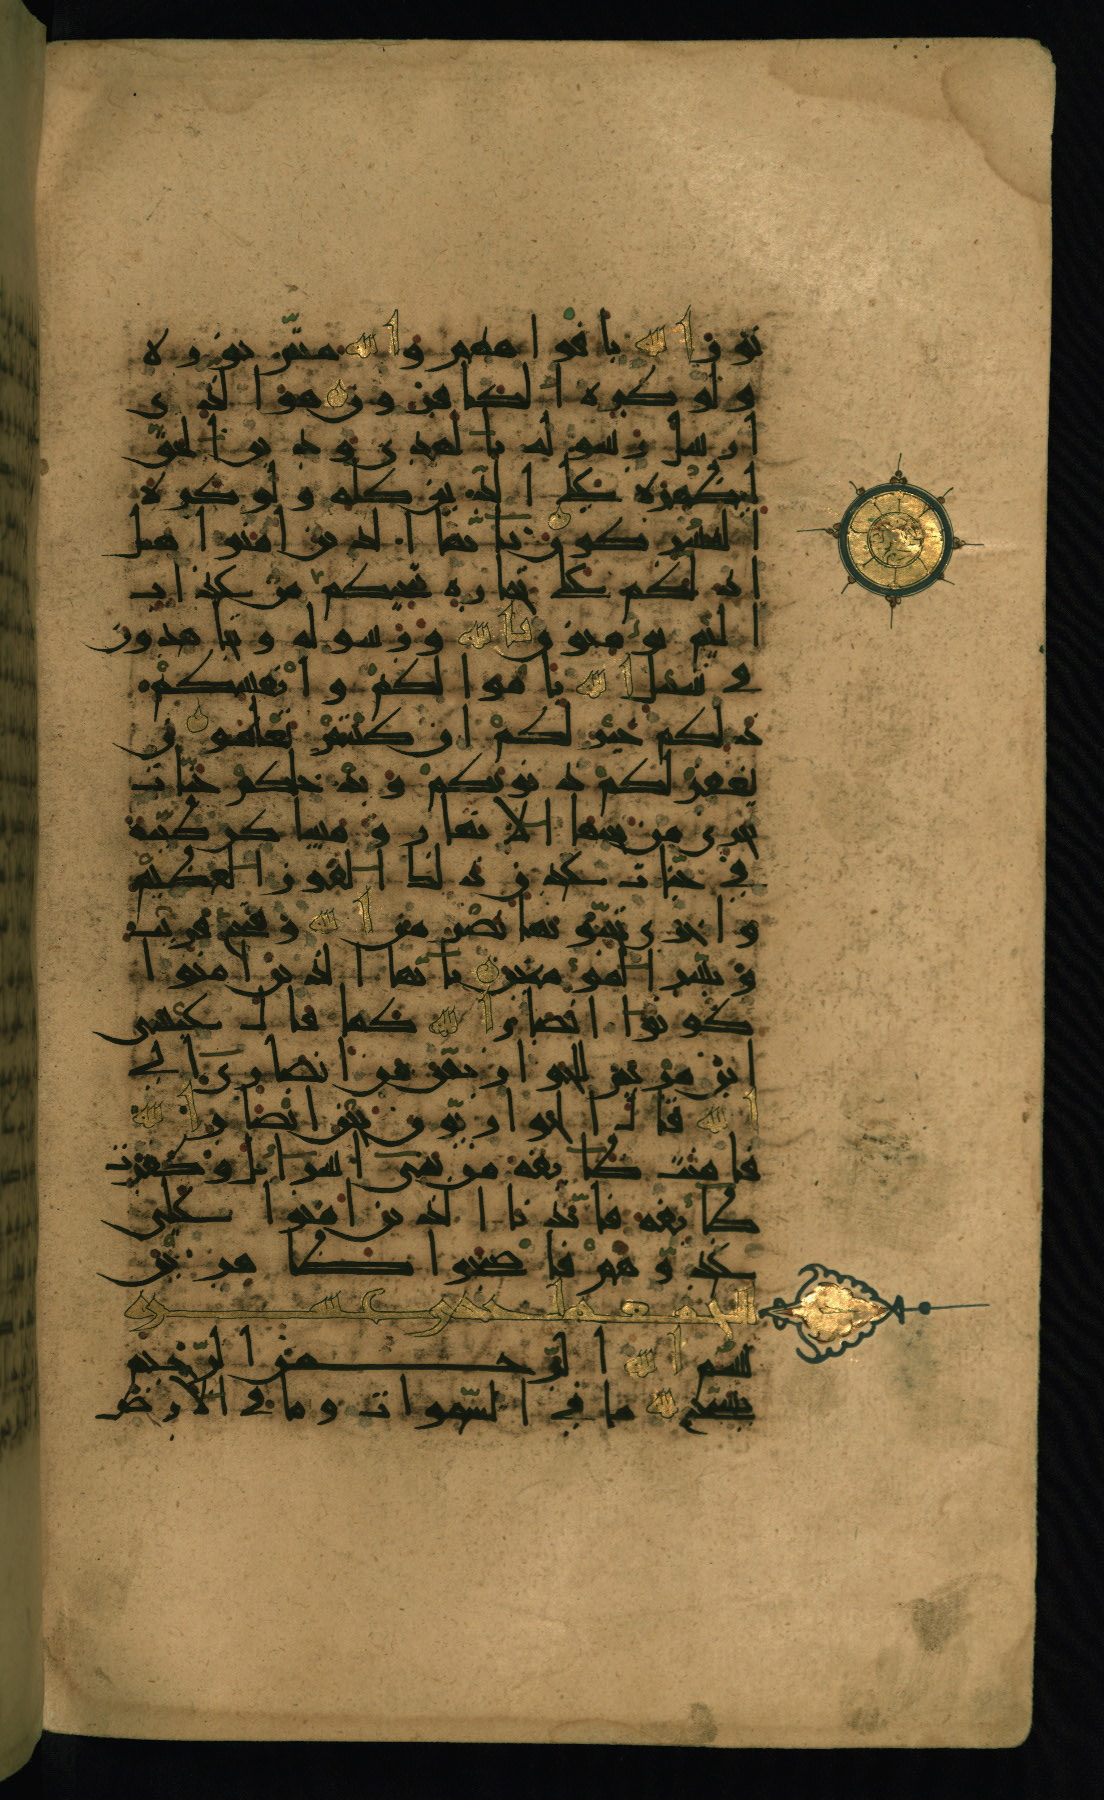 نور الله بافواههم والله متم نوره
ولو كره الكافرون هو الذي
ارسل رسوله بالهدى ودين الحق
ليظهره على الدين كله ولو كره
المشركون يا ايها الذين امنوا هل
ادلكم على تجارة تنجيكم من عذاب
اليم تؤمنون بالله ورسوله وتجاهدون
في سبيل الله باموالكم وانفسكم
ذلكم خير لكم ان كنتم تعلمون
يغفر لكم ذنوبكم ويدخلكم جنات
تجري من تحتها الانهار ومساكن طيبة
في جنات عدن ذلك الفوز العظيم
واخرى تحبونها نصر من الله وفتح قريب
وبشر المؤمنين يا ايها الذين امنوا
كونوا انصار الله كما قال عيسى
ابن مريم للحواريين من انصاري الى
الله قال الحواريون نحن انصار الله
فامنت طايفة من بني اسرايل وكفرت
طايفة فايدنا الذين امنوا على
عدوهم فاصبحوا ظاهرين
الجمعة احدى عشرة
بسم الله الرحمن الرحيم
يسبح لله ما في السموات وما في الارض